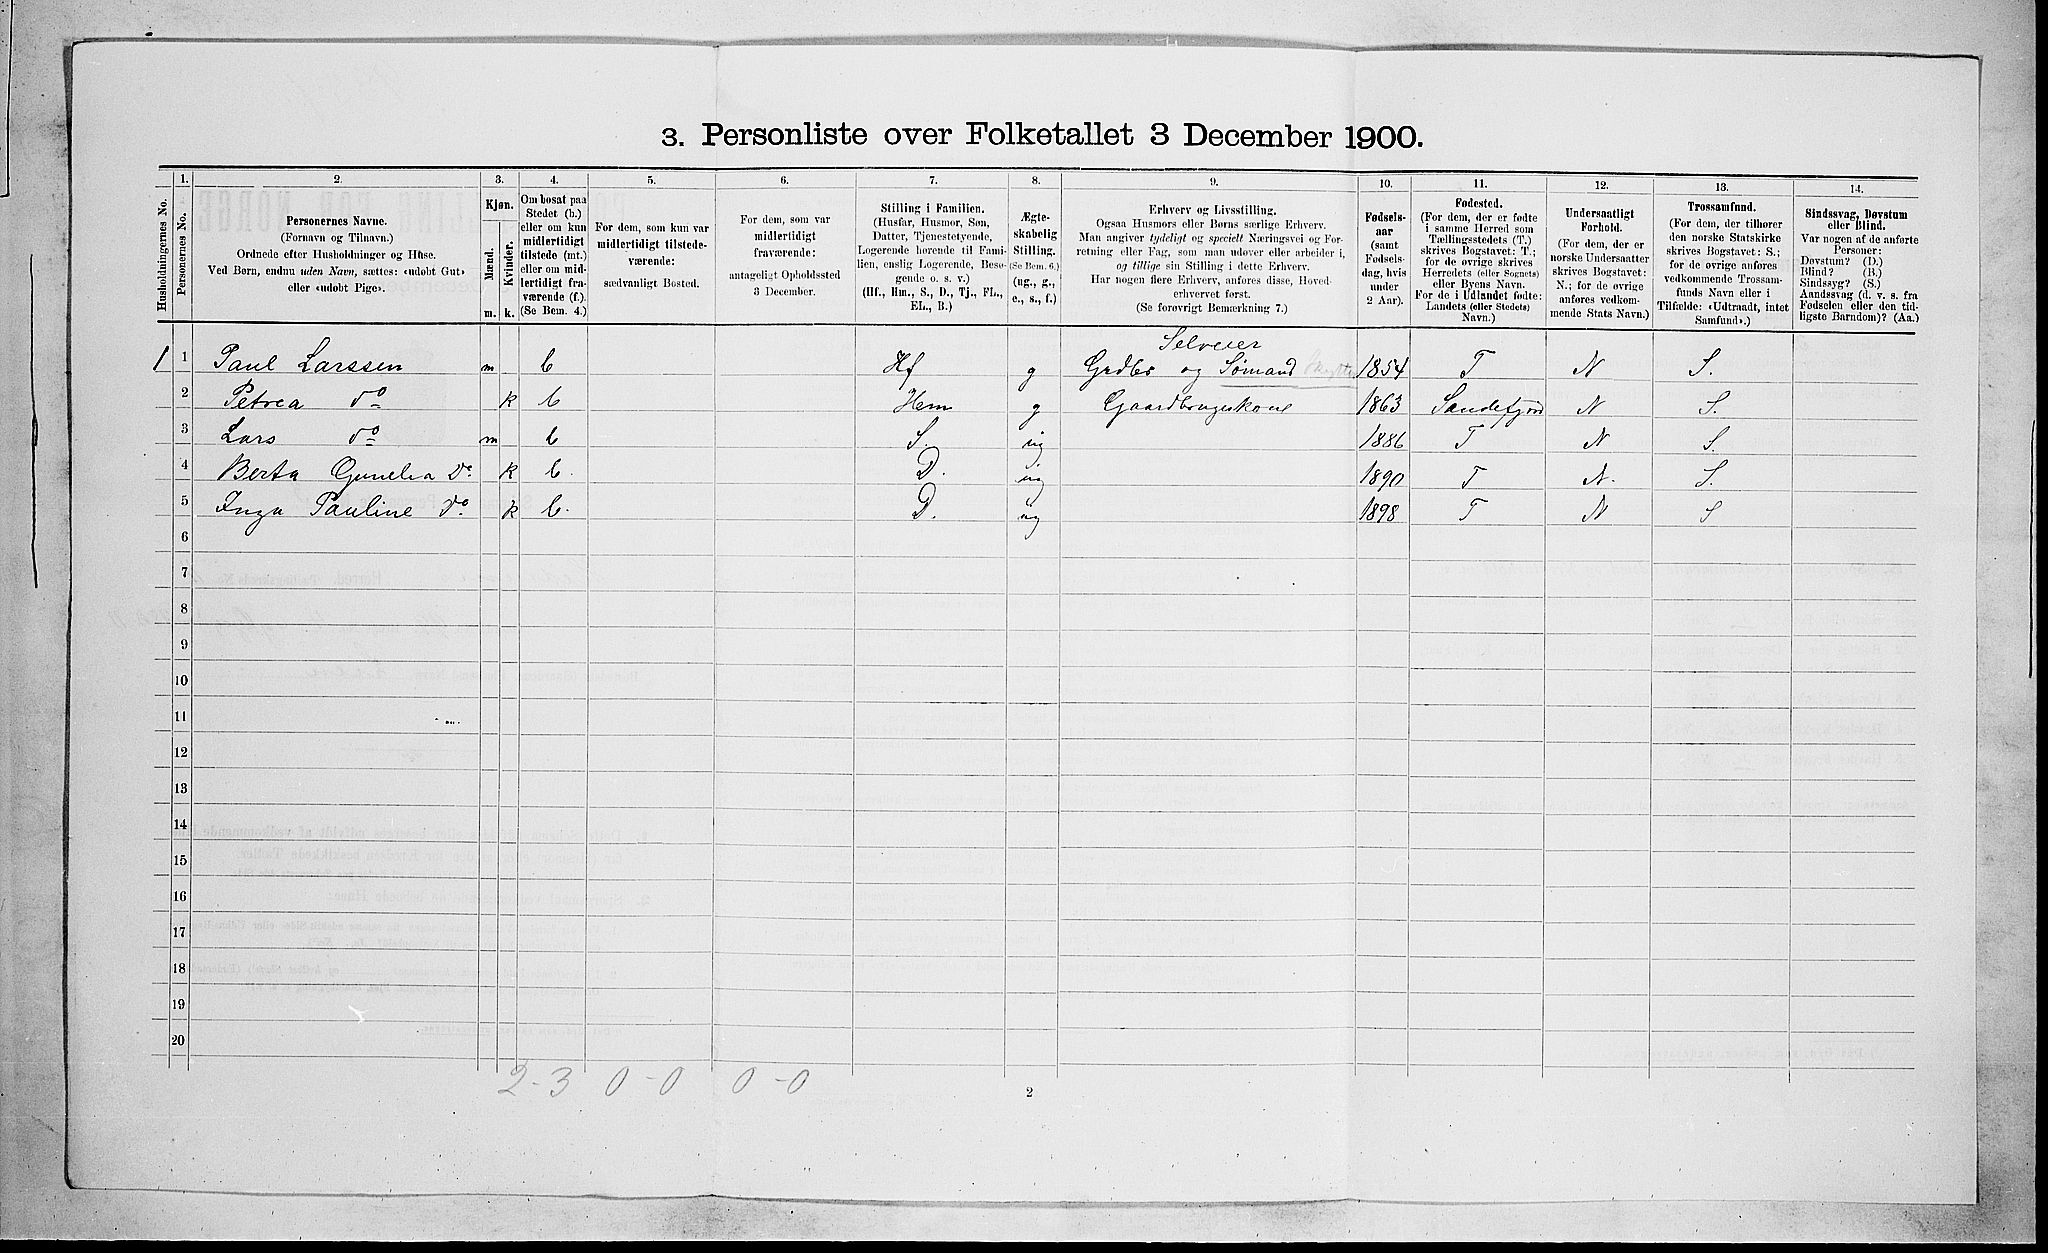 3. Personliste over Folketallet 3 December 1900.
Husholdningernes No.
1.
Personernes No.
2.
Personernes Navne.
(Fornavn og Tilnavn.)
Ordnede efter Husholdninger og Huse.
Ved Børn, endnu uden Navn, sættes: «udøbt Gut»
eller «udøbt Pige».
3.
Kjøn.
Mænd.
Kvinder.
m. k.
4.
Om bosat paa
Stedet (b.)
eller om kun
midlertidigt
tilstede (mt.)
eller om mid-
lertidigt fra-
værende (f.).
(Se Bem. 4.)
5.
For dem, som kun var
midlertidigt tilstede-
værende:
sædvanligt Bosted.
6.
For dem, som var
midlertidigt
fraværende:
antageligt Opholdssted
3 December.
7.
Stilling i Familien.
(Husfar, Husmor, Søn,
Datter, Tjenestetyende,
Logerende hørende til Fami-
lien, enslig Logerende, Besø-
gende o. s. v.)
(Hf., Hm., S., D., Tj., FL.,
EL., B.)
8.
Ægte-
skabelig
Stilling.
(Se Bem. 6.)
(ug., g.,
e., s., f.)
9.
Erhverv og Livsstilling.
Ogsaa Husmors eller Børns særlige Erhverv.
Man angiver tydeligt og specielt Næringsvei og For-
retning eller Fag, som man udøver eller arbeider i,
og tillige sin Stilling i dette Erhverv.
Har nogen flere Erhverv, anføres disse, Hoved-
erhvervet først.
(Se forøvrigt Bemærkning 7.)
10.
Fødsels-
aar
(samt
Fødsels-
dag, hvis
under
2 Aar).
11.
Fødested.
(For dem, der er fødte
i samme Herred som
Tællingsstedets (T.)
skrives Bogstavet: T.;
for de øvrige skrives
Herredets (eller Sognets)
eller Byens Navn.
For de i Udlandet fødte:
Landets (eller Stedets)
Navn.)
12.
Undersaatligt
Forhold.
(For dem, der er
norske Undersaatter
skrives Bogstavet:
N.; for de øvrige
anføres vedkom-
mende Stats Navn.)
13.
Trossamfund.
(For dem, der tilhører
den norske Statskirke
skrives Bogstavet: S.;
for de øvrige anføres
vedkommende Trossam-
funds Navn eller i
Tilfælde: «Udtraadt, intet
Samfund».)
14.
Sindssvag, Døvstum
eller Blind.
Var nogen af de anførte
Personer:
Døvstum? (D.)
Blind? (B.)
Sindssyg? (S.)
Aandssvag (d. v. s. fra
Fødselen eller den tid-
ligste Barndom)? (Aa.)
Selveier
1 1 Paul Larssen m b Hf g Grdbr og Sømand 1854 T N S.
2 Petrea do k b Hem g Gaardbrugeskone 1863 Sandefjord N S.
3 Lars do m b S. ug 1886 T N S.
4 Berta Gunelia do. k b. D. ug 1890 T N. S.
5 Inga Pauline do. k b. D. ug 1898 T N S
6
7
8
9
10
11
12
13
14
15
16
17
18
19
20
2-3 0-0 0-0
2